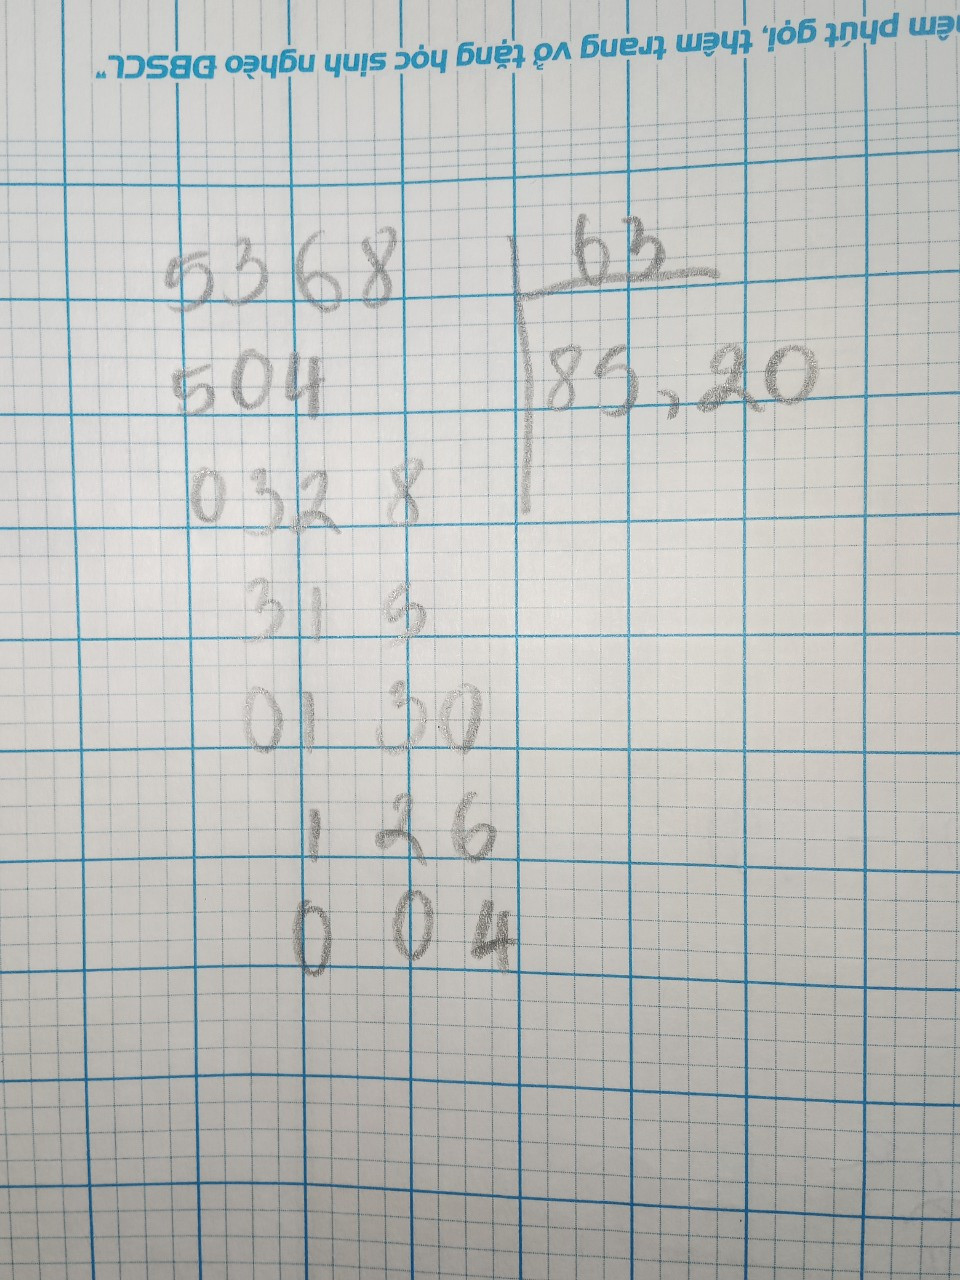 êm phút gọi, thêm trang vở tặng học sinh nghèo ĐBSCL"
5368 63
504 85,20
0328
315
0130
126
004